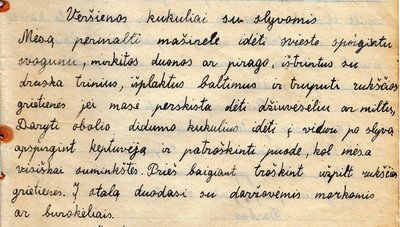 Veršienos kukuliai su slyvomis
Mėsą permalti mašinele įdėti sviesto spirgintų
svogunų, mirkitos duonos ar pirago, ištrintus su
druska trinius, išplaktus baltimus ir truputi rukščios
grietienės jei masė perskista dėti džiuvėseliu ar miltų,
Daryti obolio didumo kukulius įdėti į viduri po slyvą
apspirgint keptuvėja ir patroškinti puode, kol mėsa
visiškai suminkštės. Prieš baigiant troškint užpilt rukščios
grietienės. Į stalą duodasi su daržovėmis morkomis
ar burokėliais.